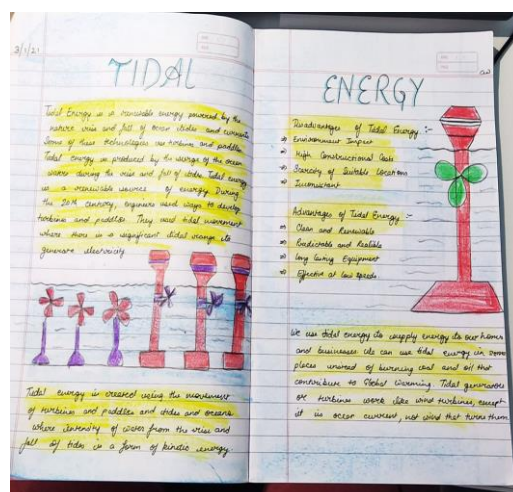 3/1/21
TIDAL
Tidal Energy is a renewable energy powered by the
nature rise and fall of ocean tides and currents
Some of these technologies use turbines and paddles
Tidal energy is produced by the surge of the ocean
waters during the rise and fall of tides Tidal energy
is a renewable source of energy During
the 20th century, engineers used ways to develop
turbine and paddles They used tidal movement
where there is a significant tidal range to
generate electricity
Tidal energy is created using the movement
of turbines and paddles and tides and oceans
where intensity of water from the rise and
fall of tides is a form of kinetic energy.
ENERGY
Disadvantages of Tidal Energy :-
Environment Impact
High Constructional Costs
Scarcity of Suitable Locations
Advantages of Tidal Energy :-
Clean and Renewable
Predictable and Reliable
Long living Equipment
Effective at low speeds
We use tidal energy to supply energy to our homes
and businesses We can use tidal energy in some
places instead of burning coal and oil that
contribute to Global Warming Tidal generators
or turbines work like wind turbines, except
it is ocean current, not wind that turns them